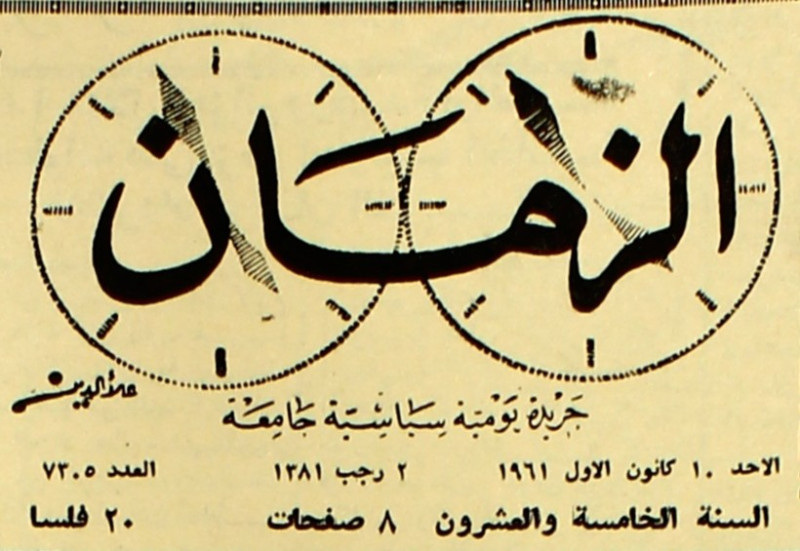 الزمان
علاء الدين
جريدة يومية سياسية جامعة
الاحد ١٠ كانون الاول ١٩٦١ ٢ رجب ١٣٨١ العدد ٧٣٠٥
السنة الخامسة والعشرون ٨ صفحات ٢٠ فلسا